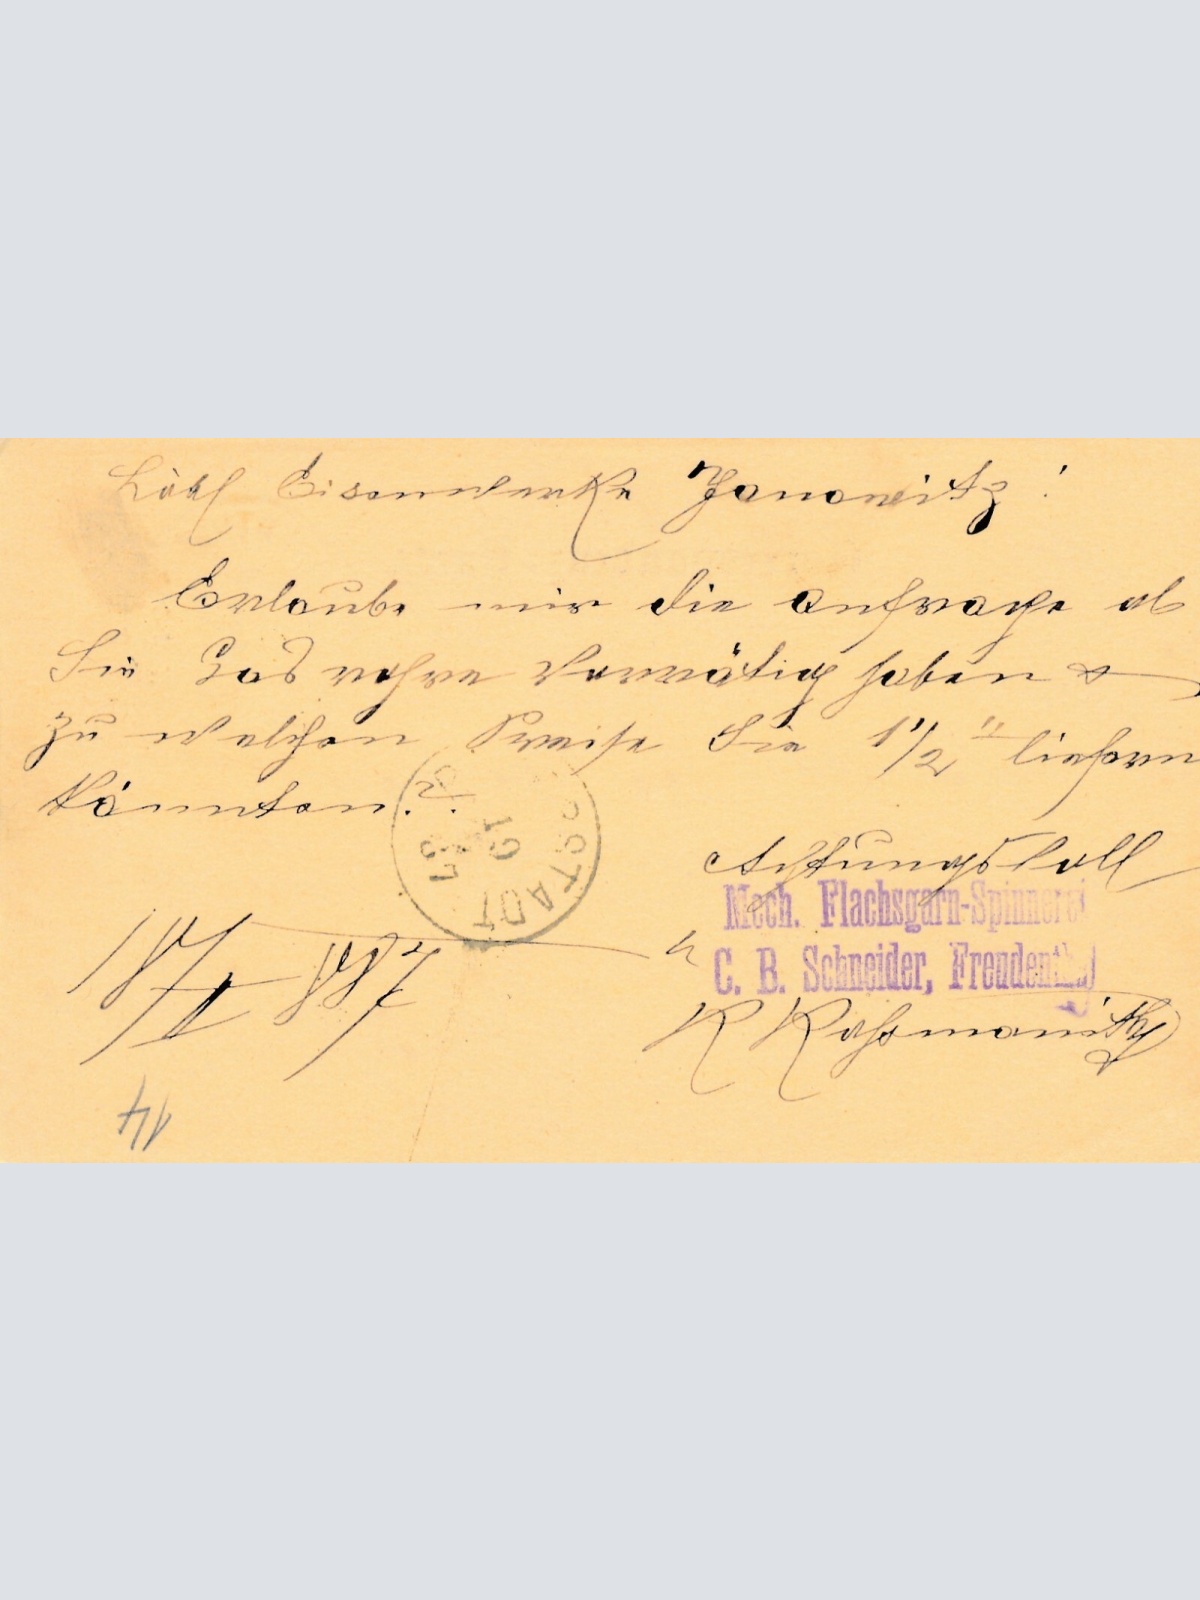 Löbl Eisenwerke Janowitz!
Erlaube mir die Anfrage ob
Sie Gasrohre vorrätig haben &
zu welchen Preise Sie 1 1/2" liefern
könnten.
Achtungsvoll
Mech. Flachsgarn-Spinnerei
C. B. Schneider, Freudenthal
18/I 887
14